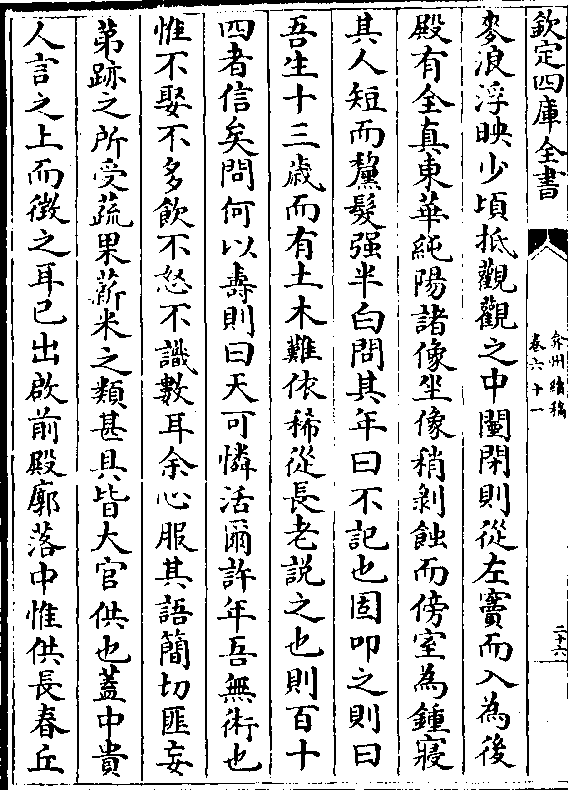 欽定四庫全書
弇州續稿
卷六十一
二十六
麥浪浮映少頃抵觀觀之中閨閉則從左竇而入為後
殿有全真東華純陽諸像坐像稍剝蝕而傍室為鍾寢
其人短而黧髮强半白問其年曰不記也固叩之則曰
吾生十三歲而有土木難依稀從長老説之也則百十
四者信矣問何以壽則曰天可憐活爾許年吾無術也
惟不娶不多飲不怒不識數耳余心服其語簡切匪妄
苐跡之所受蔬果薪米之類甚具皆大官供也蓋中貴
人言之上而徴之耳已出啟前殿廓落中惟供長春丘